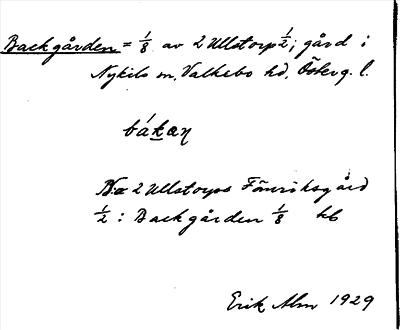 Backgården = 1/8 av 2 Ullstorp 1/2; gård i
Nykils sn, Valkebo hd, Österg. l.
bákaŋ
No 2 Ullstorps Fönriksgård
1/2 : Backgården 1/8 kb
Erik Alm 1929